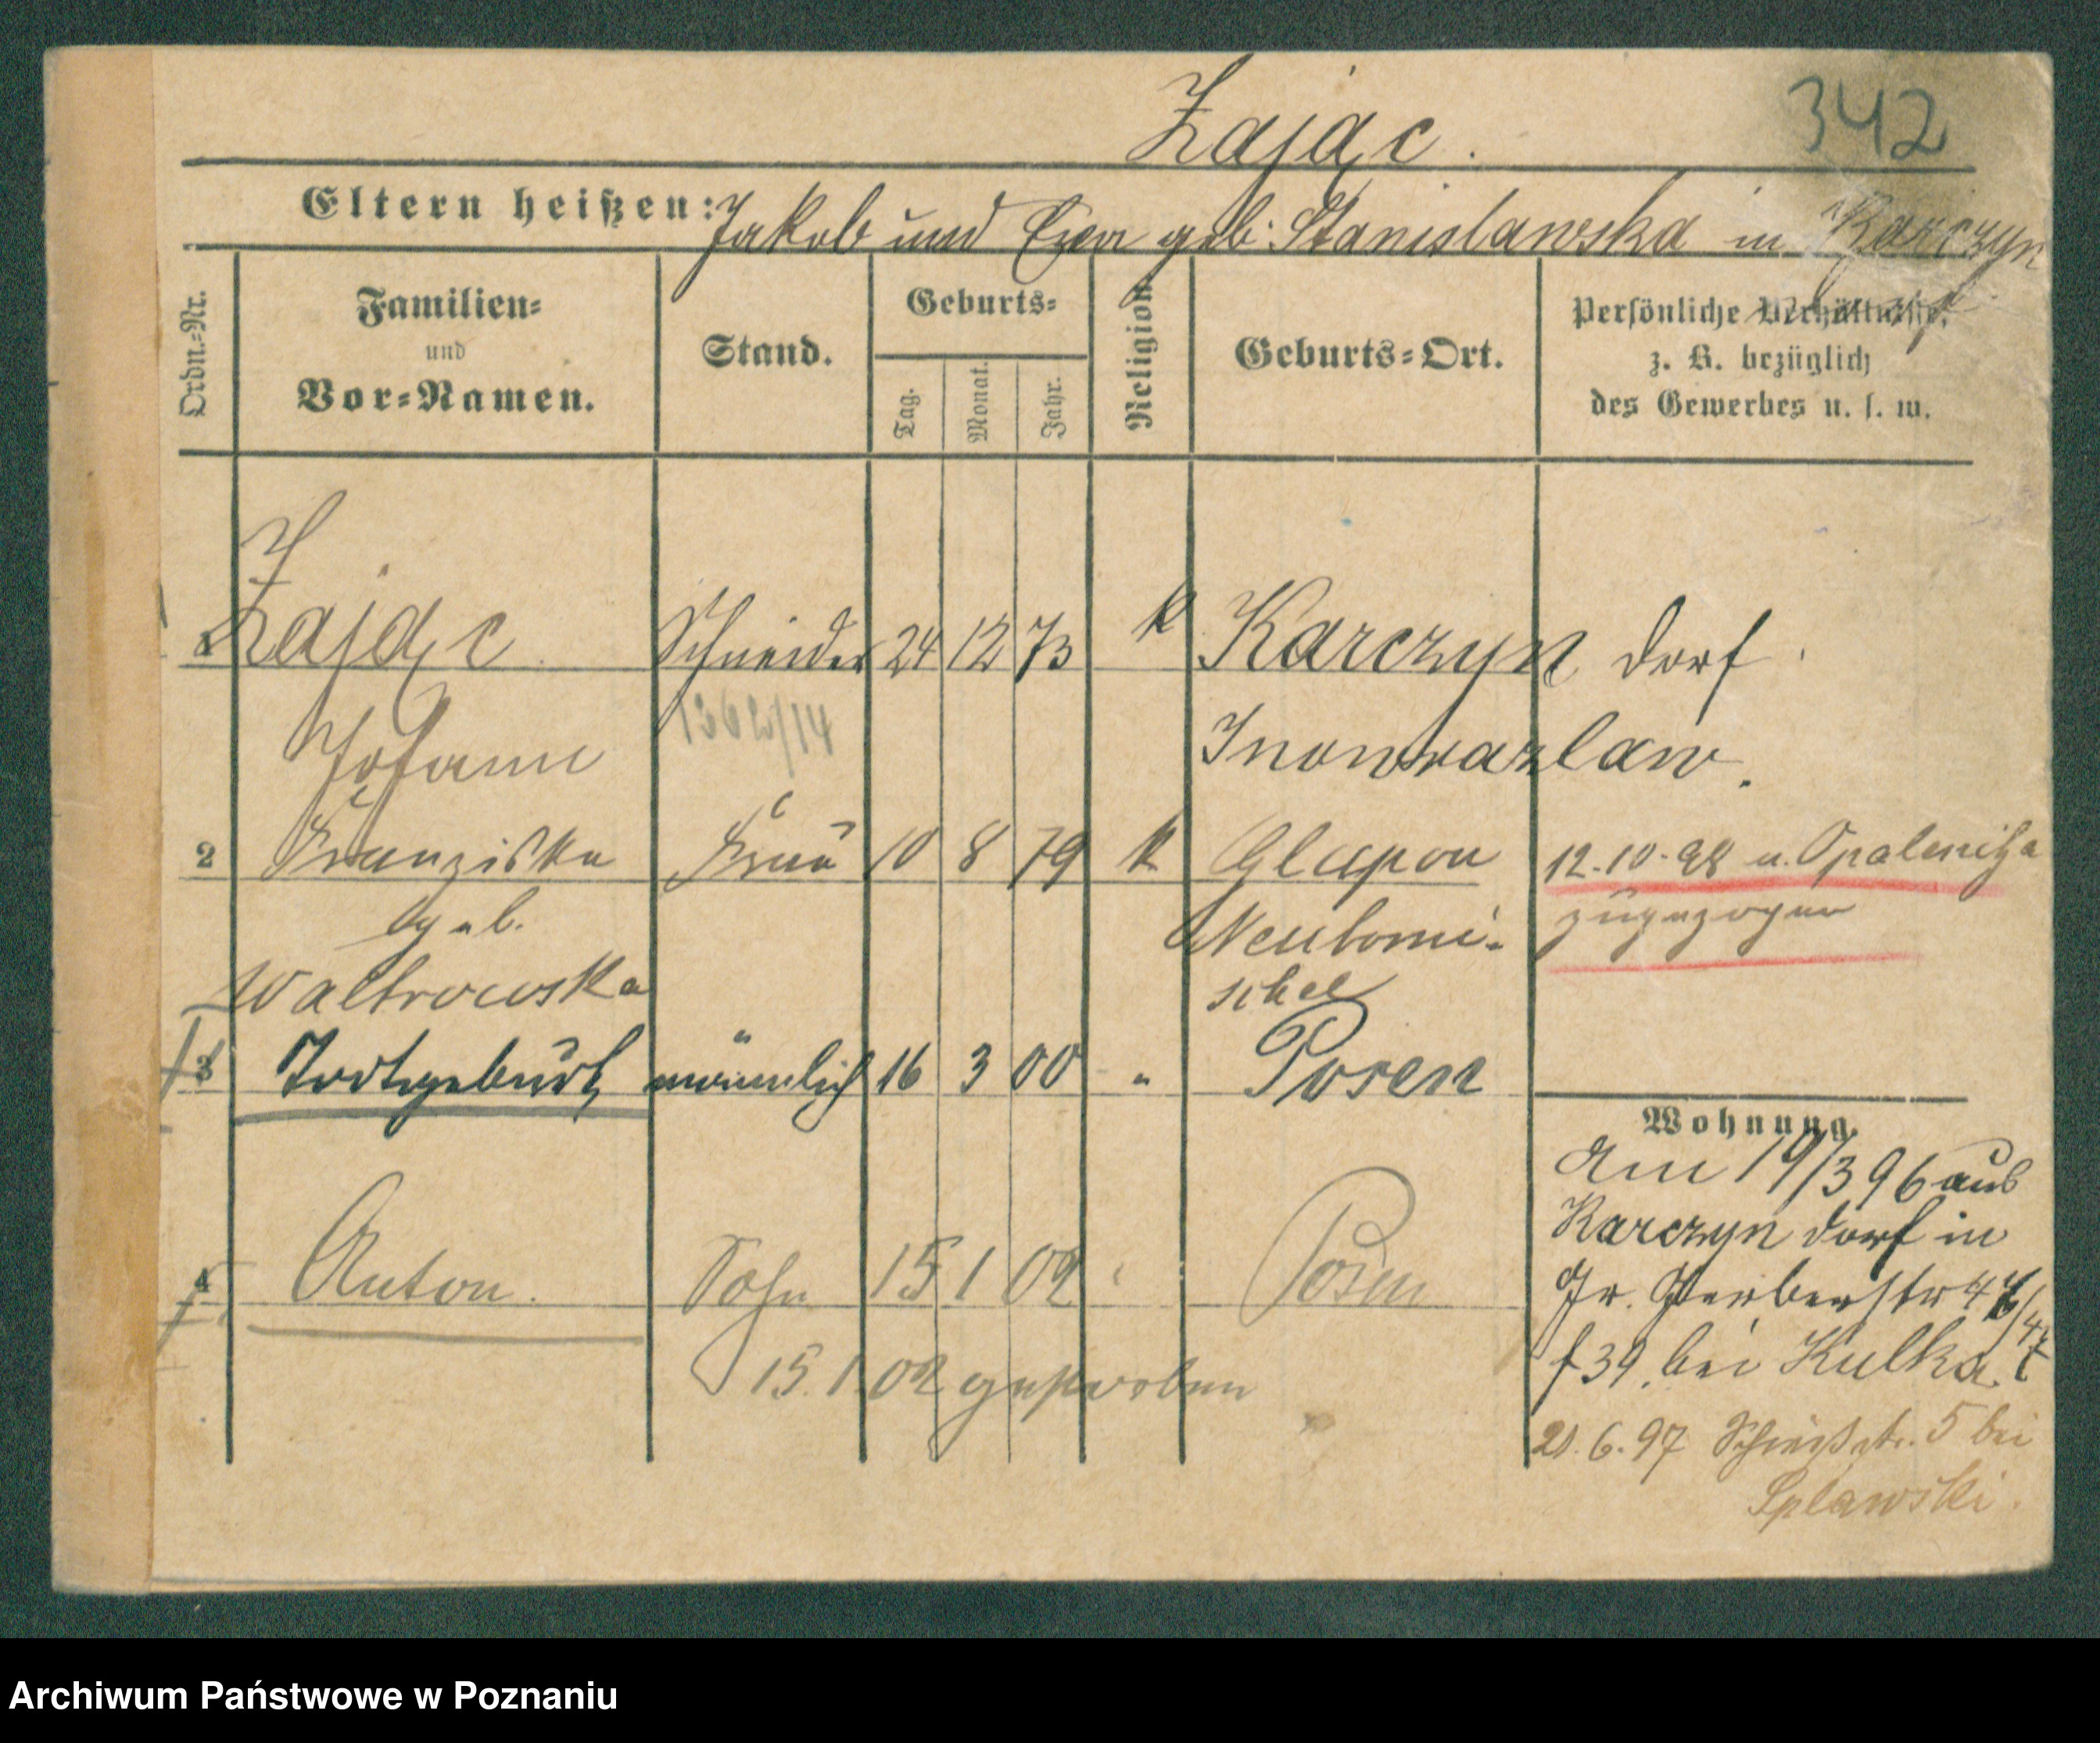 Zając. 342
Eltern heißen: Jakob und Eva geb. Stanislawska in Karczyn
Ordn.-Nr. Familien- und Vor-Namen. Stand. Geburts- Tag. Monat. Jahr. Religion. Geburts-Ort. Persönliche Verhältnisse, z. B. bezüglich des Gewerbes u. s. w.
Zając. Schneider 24 12 73 k Karczyn Dorf.
Johann 1362/14 Inowrazlaw.
2 Franziska Frau 10 8 79 k Glupon 12.10.98 u. Opalenitza
geb. Neutomi- zugezogen
Waltrowska schel
3 Todtgeburt männlich 16 3 00 " Posen
Wohnung.
Am 19/3 96 aus
Karczyn Dorf in
4 Anton. Sohn 15 1 02 Posen
Gr. Gerberstr 47
f 39. bei Kulka.
15.1.02 gestorben
21.6.97 Schießstr. 5 bei
Splawski.
Archiwum Państwowe w Poznaniu